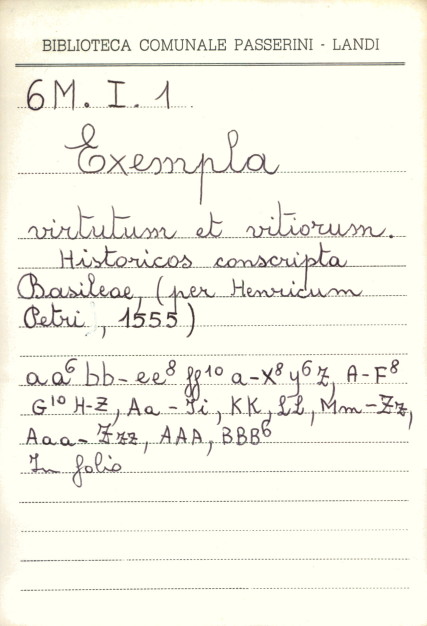 BIBLIOTECA COMUNALE PASSERINI - LANDI
6M. I. 1
Exempla
virtutum et vitiorum.
Historicos conscripta
Basileae, (per Henricum
Petri, 1555)
aa⁶ bb-ee⁸ ff¹⁰ a-x⁸ y⁶ z, A-F⁸
G¹⁰ H-Z, Aa-Ii, KK, LL, Mm-Zz,
Aaa-Zzz, AAA, BBB⁶
In folio